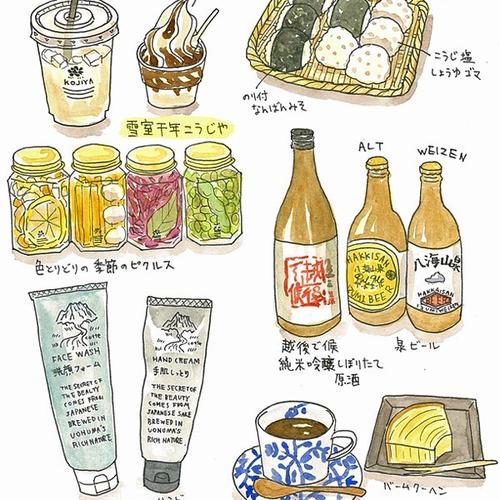 KOJIYA
こうじ塩
しょうゆゴマ
のり付
なんばんみそ
雪室千年こうじや
ALT
WEIZEN
色とりどりの季節のピクルス
HAKKISAN
八海山泉
八海山泉
HAKKISAN
BEER
越後で候
純米吟醸しぼりたて
原酒
泉ビール
FACE WASH
洗顔フォーム
THE SECRET OF
THE BEAUTY
COMES FROM
JAPANESE
BREWED IN
UONUMA'S
RICH NATURE
HAND CREAM
手肌しっとり
THE SECRET OF
THE BEAUTY
COMES FROM
JAPANESE SAKE
BREWED IN
UONUMA'S
RICH NATURE
バームクーヘン